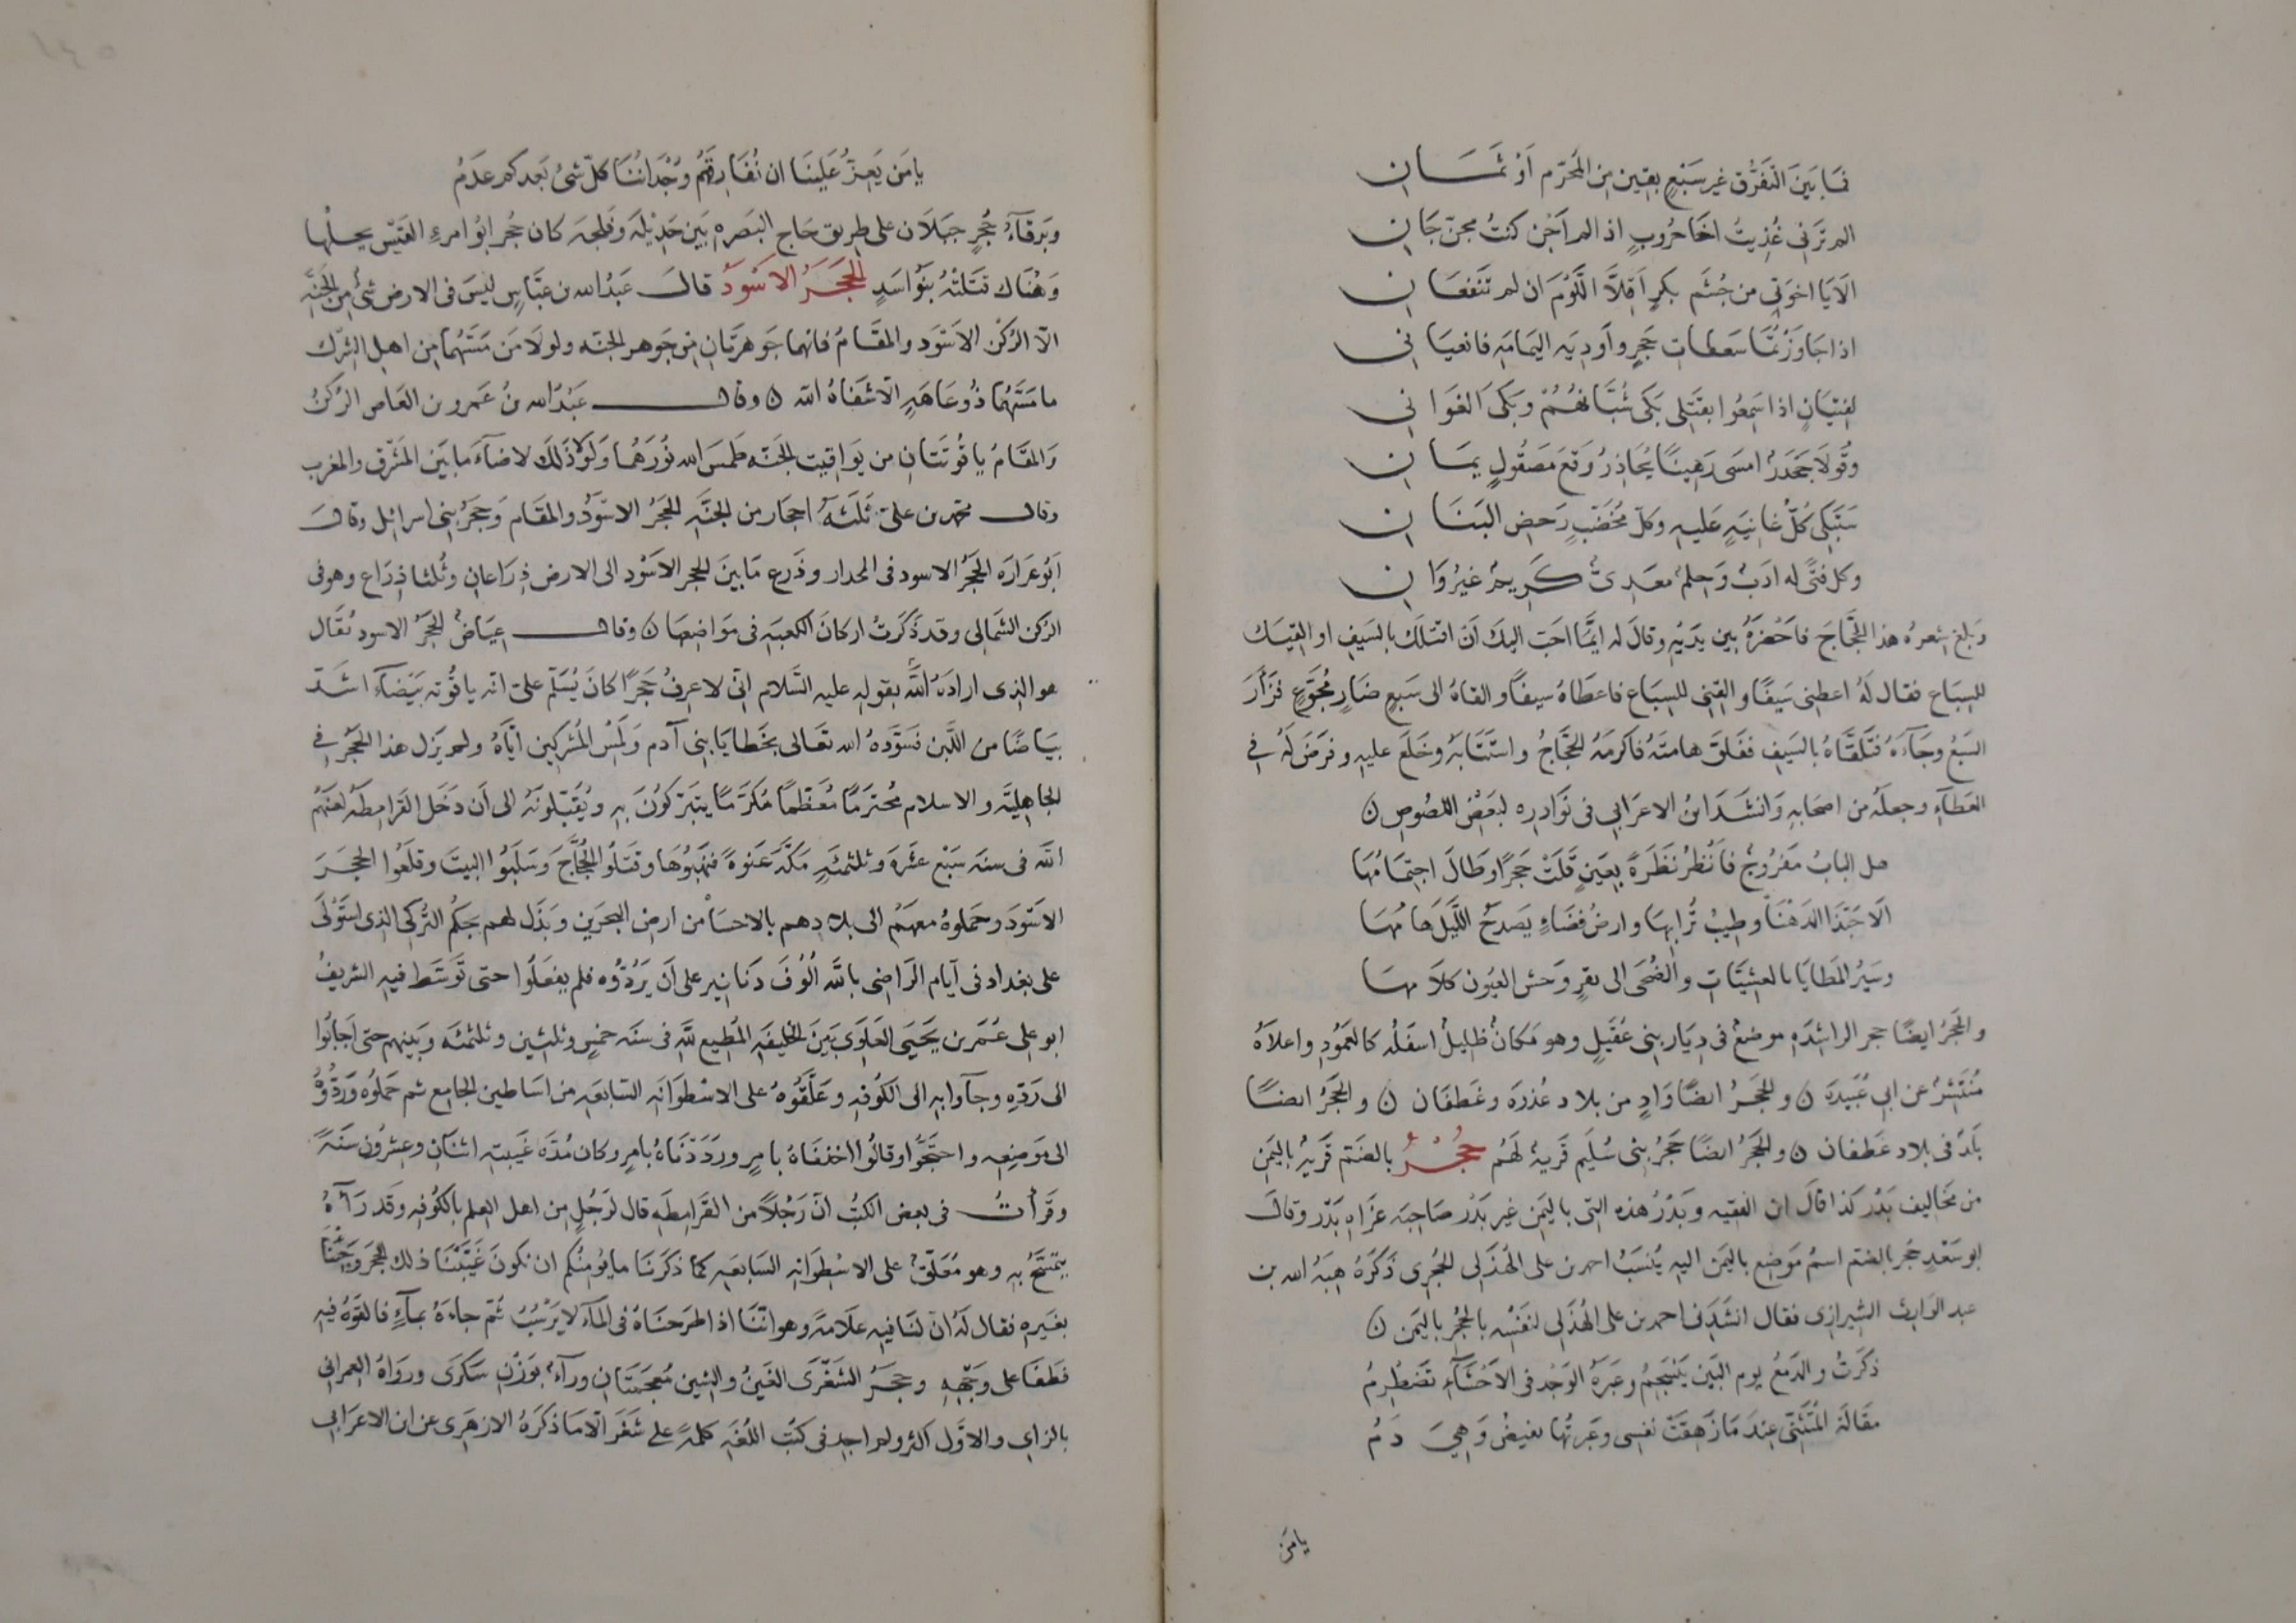 فما بين التفرق غير سبع بقين من المحرم او ثمان
الم ترني غذيت اخا حروب اذا لم اجن كنت مجن جان
الايا اخوتي من جشم بكر اقلا اللوم ان لم تنفعان
اذا جاوزتما سعفات حجر واودية اليمامة فانعياني
لفتيان اذا سمعوا بقتلي بكى شبانهم وبكى الغواني
وقولا جحدر امسى رهينا يحاذر وقع مصقول يمان
ستبكي كل غانية عليه وكل مخضب رخص البنان
وكل فتى له ادب وحلم معدي كريم غير وان
وبلغ شعره هذا الحجاج فاحضره بين يديه وقال له ايما احب اليك ان اقتلك بالسيف او القيك
للسباع فقال له اعطني سيفا والقني للسباع فاعطاه سيفا والقاه الى سبع ضار مجوع فزأر
السبع وجآءه فتلقاه بالسيف ففلق هامته فاكرمه الحجاج واستتابه وخلع عليه وفرض له في
العطآء وجعله من اصحابه وانشد ابن الاعرابي في نوادره لبعض اللصوص ن
هل الباب مفروج فانظر نظرة بعين قلت حجرا وطال اجتمامها
الا حبذا الدهنا وطيب ترابها وارض فضاء يصدح الليل هامها
وسير المطايا بالعشيات والضحى الى بقر وحش العيون كلامها
والحجر ايضا حجر الراشدة موضع في ديار بني عقيل وهو مكان ظليل اسفله كالعمود واعلاه
منتشر عن ابي عبيدة ن والحجر ايضا واد من بلاد عذرة وغطفان ن والحجر ايضا
بلد في بلاد غطفان ن والحجر ايضا حجر بني سليم قرية لهم حجر بالضم قرية باليمن
من مخاليف بدر كذا قال ابن الفقيه وبدر هذه التي باليمن غير بدر صاحبة غزاه بدر وقال
ابو سعد حجر بالضم اسم موضع باليمن اليه ينسب احمد بن علي الهذلي الحجري ذكره هبة الله بن
عبد الوارث الشيرازي فقال انشدني احمد بن علي الهذلي لنفسه بالحجر باليمن ن
ذكرت والدمع يوم البين ينسجم وعبرة الوجد في الاحشآء تضطرم
مقالة المتنبي عندما زهقت نفسي وعبرتها تفيض وهي دم
يامن
يا من يعز علينا ان نفارقهم وجداننا كل شئ بعدكم عدم
وبرقآء حجر جبلان على طريق حاج البصرة بين جديلة وفلجة كان حجر ابو امرء القيس يحلها
وهناك قتلته بنو اسد الحجر الاسود قال عبد الله بن عباس ليس في الارض شئ من الجنة
الا الركن الاسود والمقام فانهما جوهرتان من جوهر الجنة ولولا من مسهما من اهل الشرك
ما مسهما ذو عاهة الا شفاه الله ن وقال عبد الله بن عمرو بن العاص الركن
والمقام ياقوتتان من يواقيت الجنة طمس الله نورهما ولولا ذلك لاضآء ما بين المشرق والمغرب
وقال محمد بن علي ثلثة احجار من الجنة الحجر الاسود والمقام وحجر بني اسرائل وقال
ابو عرارة الحجر الاسود في الجدار وذرع ما بين الحجر الاسود الى الارض ذراعان وثلثا ذراع وهو في
الركن الشمالي وقد ذكرت اركان الكعبة في مواضعها ن وقال عياض الحجر الاسود يقال
هو الذي اراده الله بقوله عليه السلام اني لاعرف حجرا كان يسلم علي انه ياقوتة بيضآء اشد
بياضا من اللبن فسوده الله تعالى بخطايا بني آدم ولمس المشركين اياه ولم يزل هذا الحجر في
الجاهلية والاسلام محترما معظما مكرما يتبركون به ويقبلونه الى ان دخل القرامطة لعنهم
الله في سنة سبع عشرة وثلثمئة مكة عنوة فنهبوها وقتلوا الحجاج وسلبوا البيت وقلعوا الحجر
الاسود وحملوه معهم الى بلادهم بالاحسا من ارض البحرين وبذل لهم بجكم التركي الذي استولى
على بغداد في آيام الراضي بالله الوف دنانير على ان يردوه فلم يفعلوا حتى توسط فيه الشريف
ابو علي عمر بن يحيى العلوي بين الخليفة المطيع لله في سنة خمس وثلثين وثلثمئة وبينهم حتى اجابوا
الى رده وجآوا به الى الكوفة وعلقوه على الاسطوانة السابعة من اساطين الجامع ثم حملوه وردوه
الى موضعه واحتجوا وقالوا اخذناه بامر ورددناه بامر وكان مدة غيبته اثنان وعشرون سنة
وقرأت في بعض الكتب ان رجلا من القرامطة قال لرجل من اهل العلم بالكوفة وقد رآه
يتمسح به وهو معلق على الاسطوانة السابعة كما ذكرنا ما يؤمنكم ان نكون غيبنا ذلك الحجر وجئنا
بغيره فقال له ان لنا فيه علامة وهو اننا اذا طرحناه في المآء لا يرسب ثم جاءه بمآء فالقوه فيه
فطفا على وجهه وحجر الشغرى الغين والشين معجمتان ورآء بوزن سكرى ورواه العمراني
بالزاي والاول اكثر ولم اجد في كتب اللغة كلمة على شغر الا ما ذكره الازهري عن ابن الاعرابي